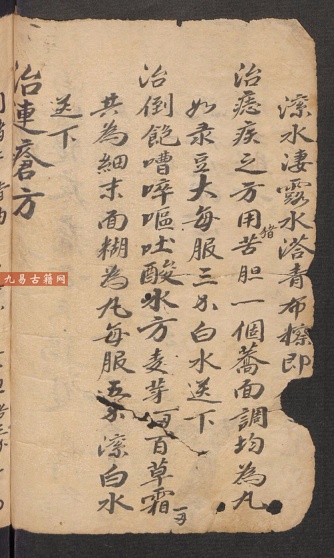 滚水淒露水溚青布擦即
治痣疾之方用苦猪胆一個蕎面調均為丸
如彔豆大每服三分白水送下
治倒飽嘈啐嘔吐酸水方麦芽百草霜
共為細末面糊為丸每服五分滚白水
送下
治連瘡方
九易古籍网